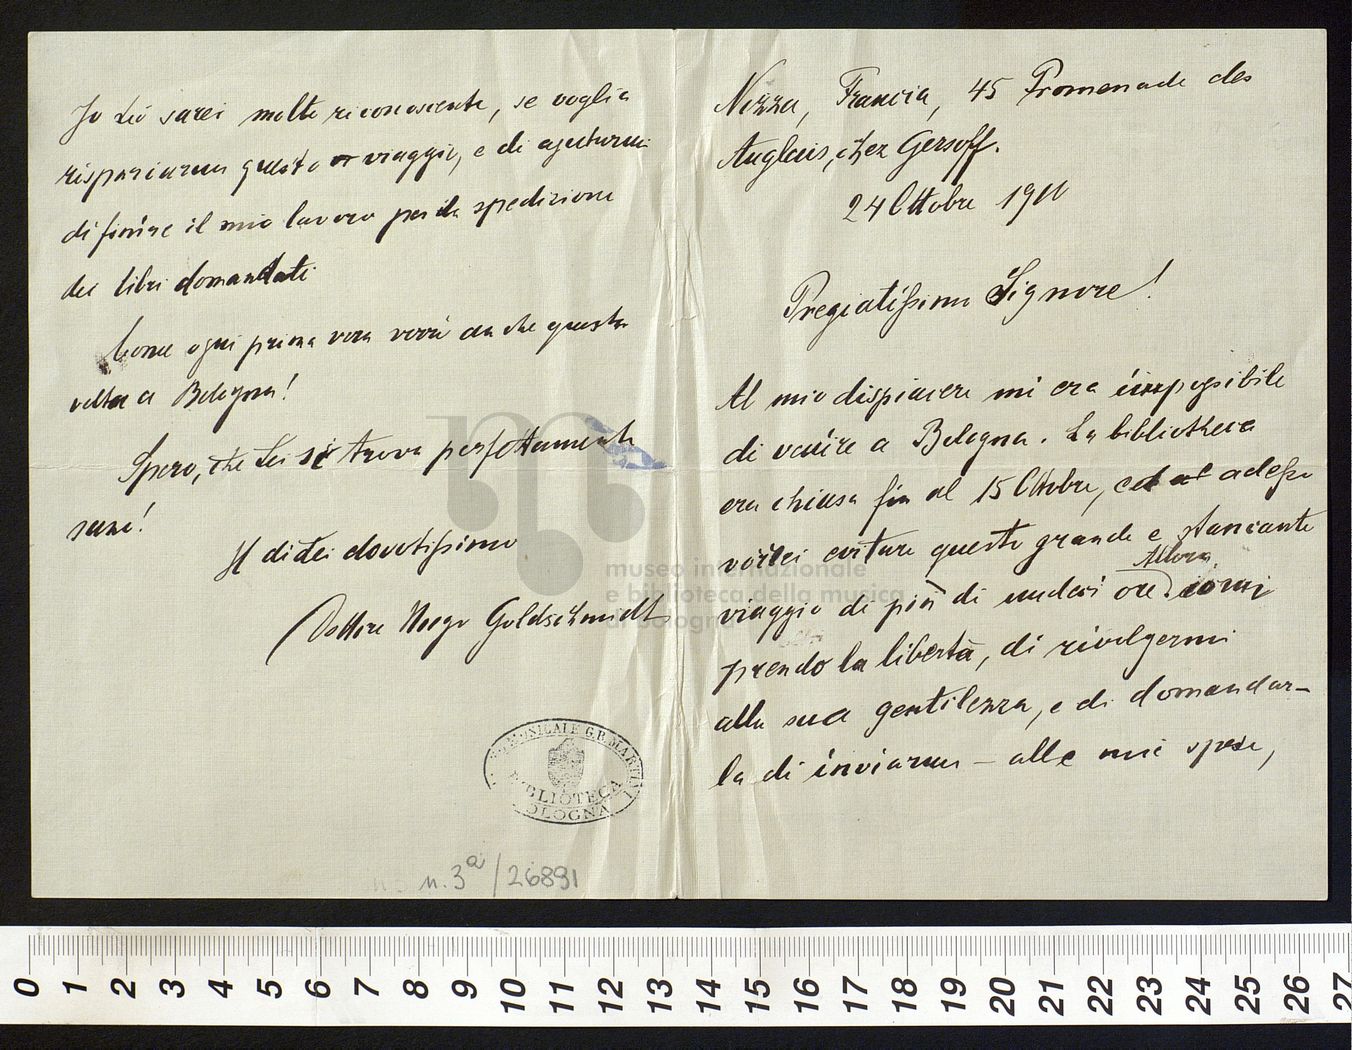 Nizza, Francia, 45 Promenade des
Anglais, chez Gersoff.
24 Ottobre 1910
Pregiatissimo Signore!
Al mio dispiacere mi era impossibile
di venire a Bologna. La bibliotheca
era chiusa fin al 15 Ottobre, ed adesso
vorrei evitare questo grande e stancante
Allora
viaggio di più di undeci ore. io mi
prendo la libertà, di rivolgermi
alla sua gentilezza, e di domandar-
la di inviarmi - alle mie spese,
Io Lei sarei molto riconoscente, se voglia
rispariarmi questo viaggio, e di ajutarmi
di finire il mio lavoro per la spedizione
dei libri domandati
Come ogni prima vera verrò anche questa
volta a Bologna!
Spero, che Lei si trova perfettamente
sano!
Il di Lei devotissimo
Dottore Hugo Goldschmidt
G. B. MARTINI
BIBLIOTECA
BOLOGNA
n. 3a/26891
museo internazionale
e biblioteca della musica
di bologna
0 1 2 3 4 5 6 7 8 9 10 11 12 13 14 15 16 17 18 19 20 21 22 23 24 25 26 27